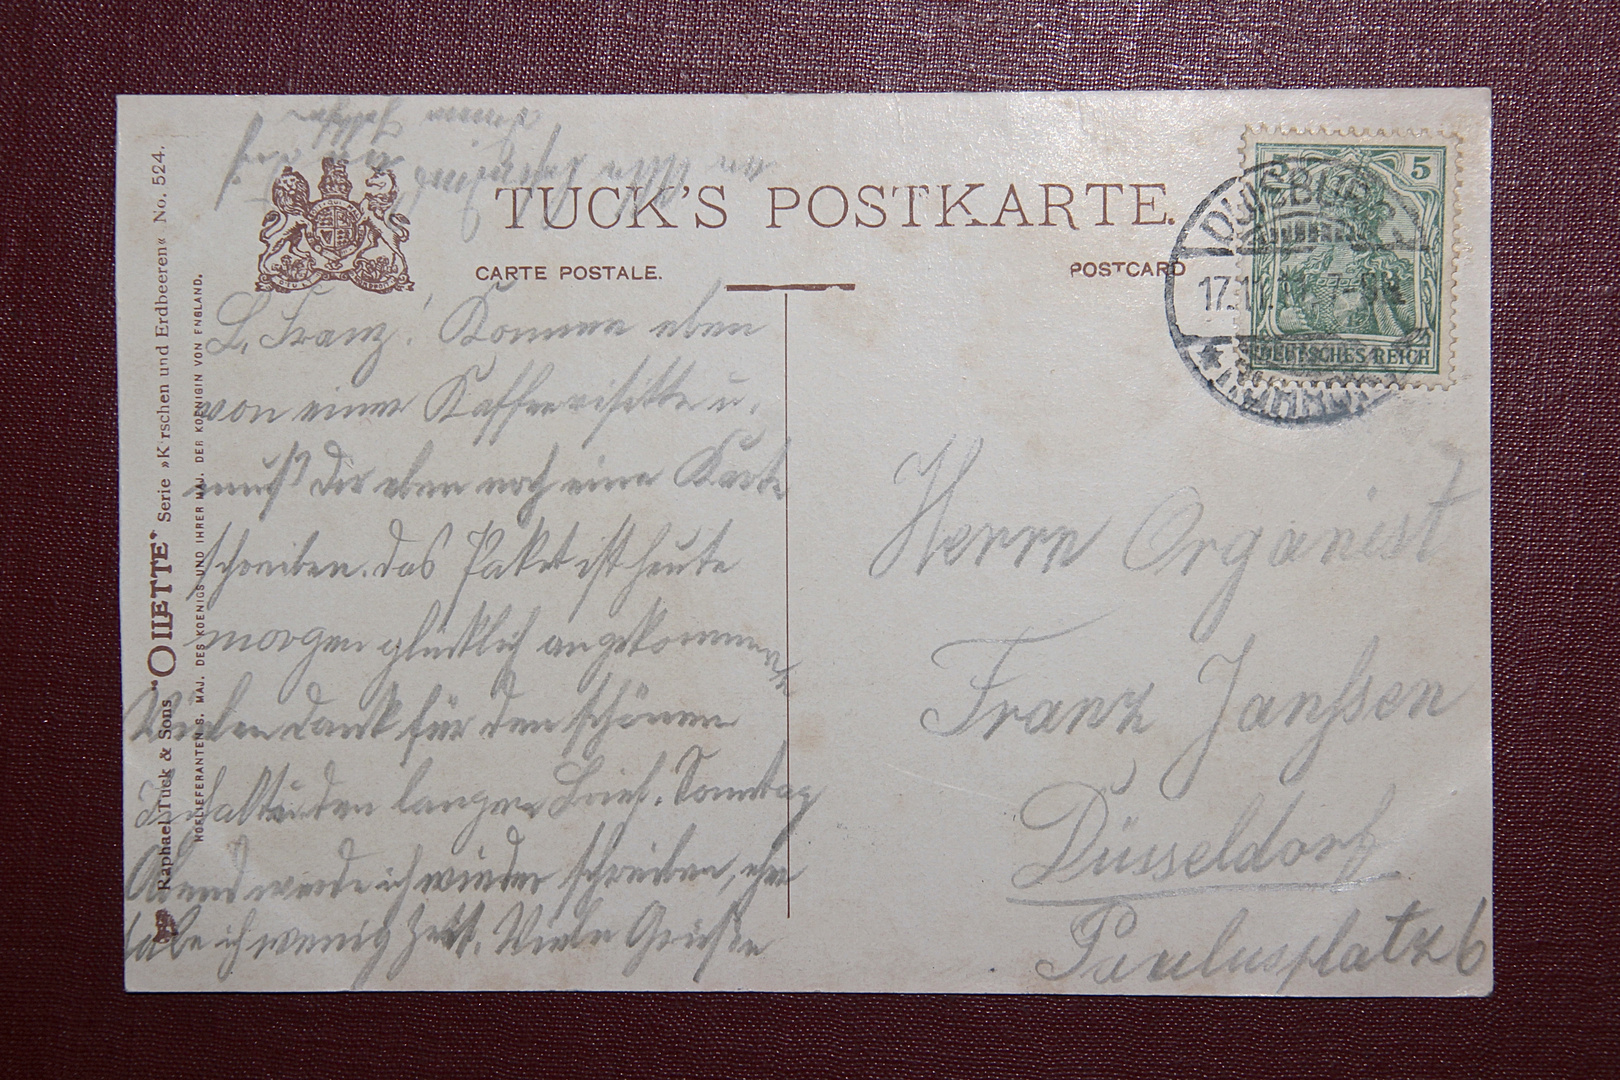 TUCK'S POSTKARTE.
CARTE POSTALE.
POSTCARD
Raphael Tuck & Sons "OILETTE" Serie »Kirschen und Erdbeeren« No. 524.
HOFLIEFERANTEN S. MAJ. DES KOENIGS UND IHRER MAJ. DER KOENIGIN VON ENGLAND.
5
DEUTSCHES REICH
DUISBURG
17.11.
L. Franz! Komme eben
von einer Kaffeevisitte u.
muß Dir eben noch eine Karte
schreiben. Das Paket ist heute
morgen glücklich angekommen
Vielen Dank für den schönen
Inhalt u den langen Brief. Sonntag
Abend werde ich wieder schreiben, eher
habe ich wenig Zeit. Viele Grüße
an
Herrn Organist
Franz Janssen
Düsseldorf
Paulusplatz 6